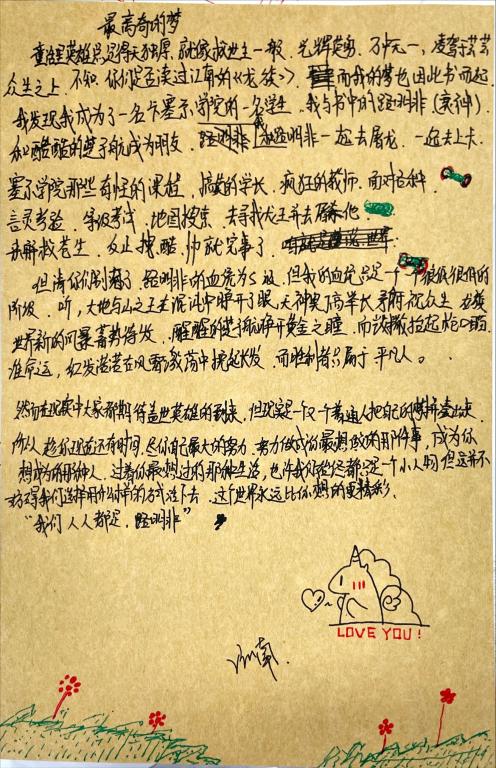 最离奇的梦
童话里英雄总是得天独厚，就像救世主一般，光辉英勇，万中无一，凌驾于芸芸
众生之上，不知你们是否读过江南的《龙族》，而我的梦也因此书而起，
我发现我成为了一名卡塞尔学院的一名学生，我与书中的路明非（衰神）
和酷酷的楚子航成为朋友，我和路明非一起去屠龙，一起去上卡
塞尔学院那些奇怪的课程，搞怪的学长，疯狂的教师，面对各种
言灵考验，等级考试，地图搜索，去寻找龙王并去屠杀他
拯救苍生，众止拽，酷，帅就完事了
但请你们别忘了，路明非的血统为S级，但我的血统只是一个很低很低的
阶级，听，大地与山之王在沉寂中睁开了眼，天神奥丁高举长矛俯视众生
世界新的风暴蓄势待发，酷酷的楚子航睁开黄金之瞳，而
谁命运，红发诺诺在风雷激荡中挽起长发，而胜利者只属于平凡人。
然而在现实中大家都期待盖世英雄的到来，但现实是一个又一个普通人把自己的
所以趁你现在还有时间，尽你自己最大的努力，努力做成你最想做的那件事，成为你
想成为的那种人，过着你最想过的那种生活，也许我们始终都只是一个小人物，但这并不
妨碍我们选择用什么样的方式活下去，这个世界永远比你想的更精彩、
“我们人人都是，路明非”
LOVE YOU!